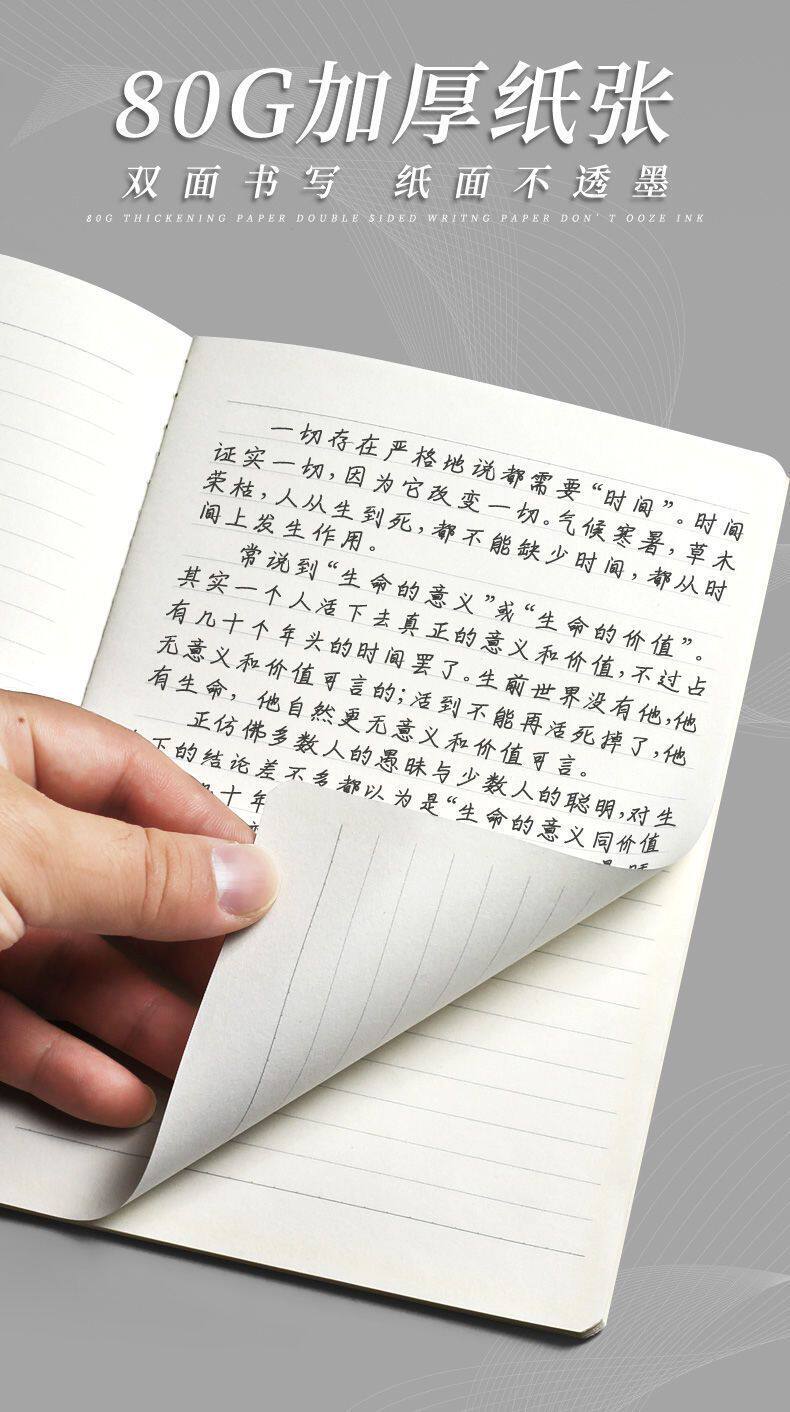 80G加厚纸张
双面书写 纸面不透墨
80G THICKENING PAPER DOUBLE SIDED WRITNG PAPER DON'T OOZE INK
一切存在严格地说都需要“时间”。时间
证实一切,因为它改变一切。气候寒暑,草木
荣枯,人从生到死,都不能缺少时间,都从时
间上发生作用。
常说到“生命的意义”或“生命的价值”。
其实一个人活下去真正的意义和价值,不过占
有几十个年头的时间罢了。生前世界没有他,他
无意义和价值可言的;活到不能再活死掉了,他
有生命,他自然更无意义和价值可言。
正仿佛多数人的愚昧与少数人的聪明,对生
下的结论差不多都以为是“生命的意义同价值
几十年